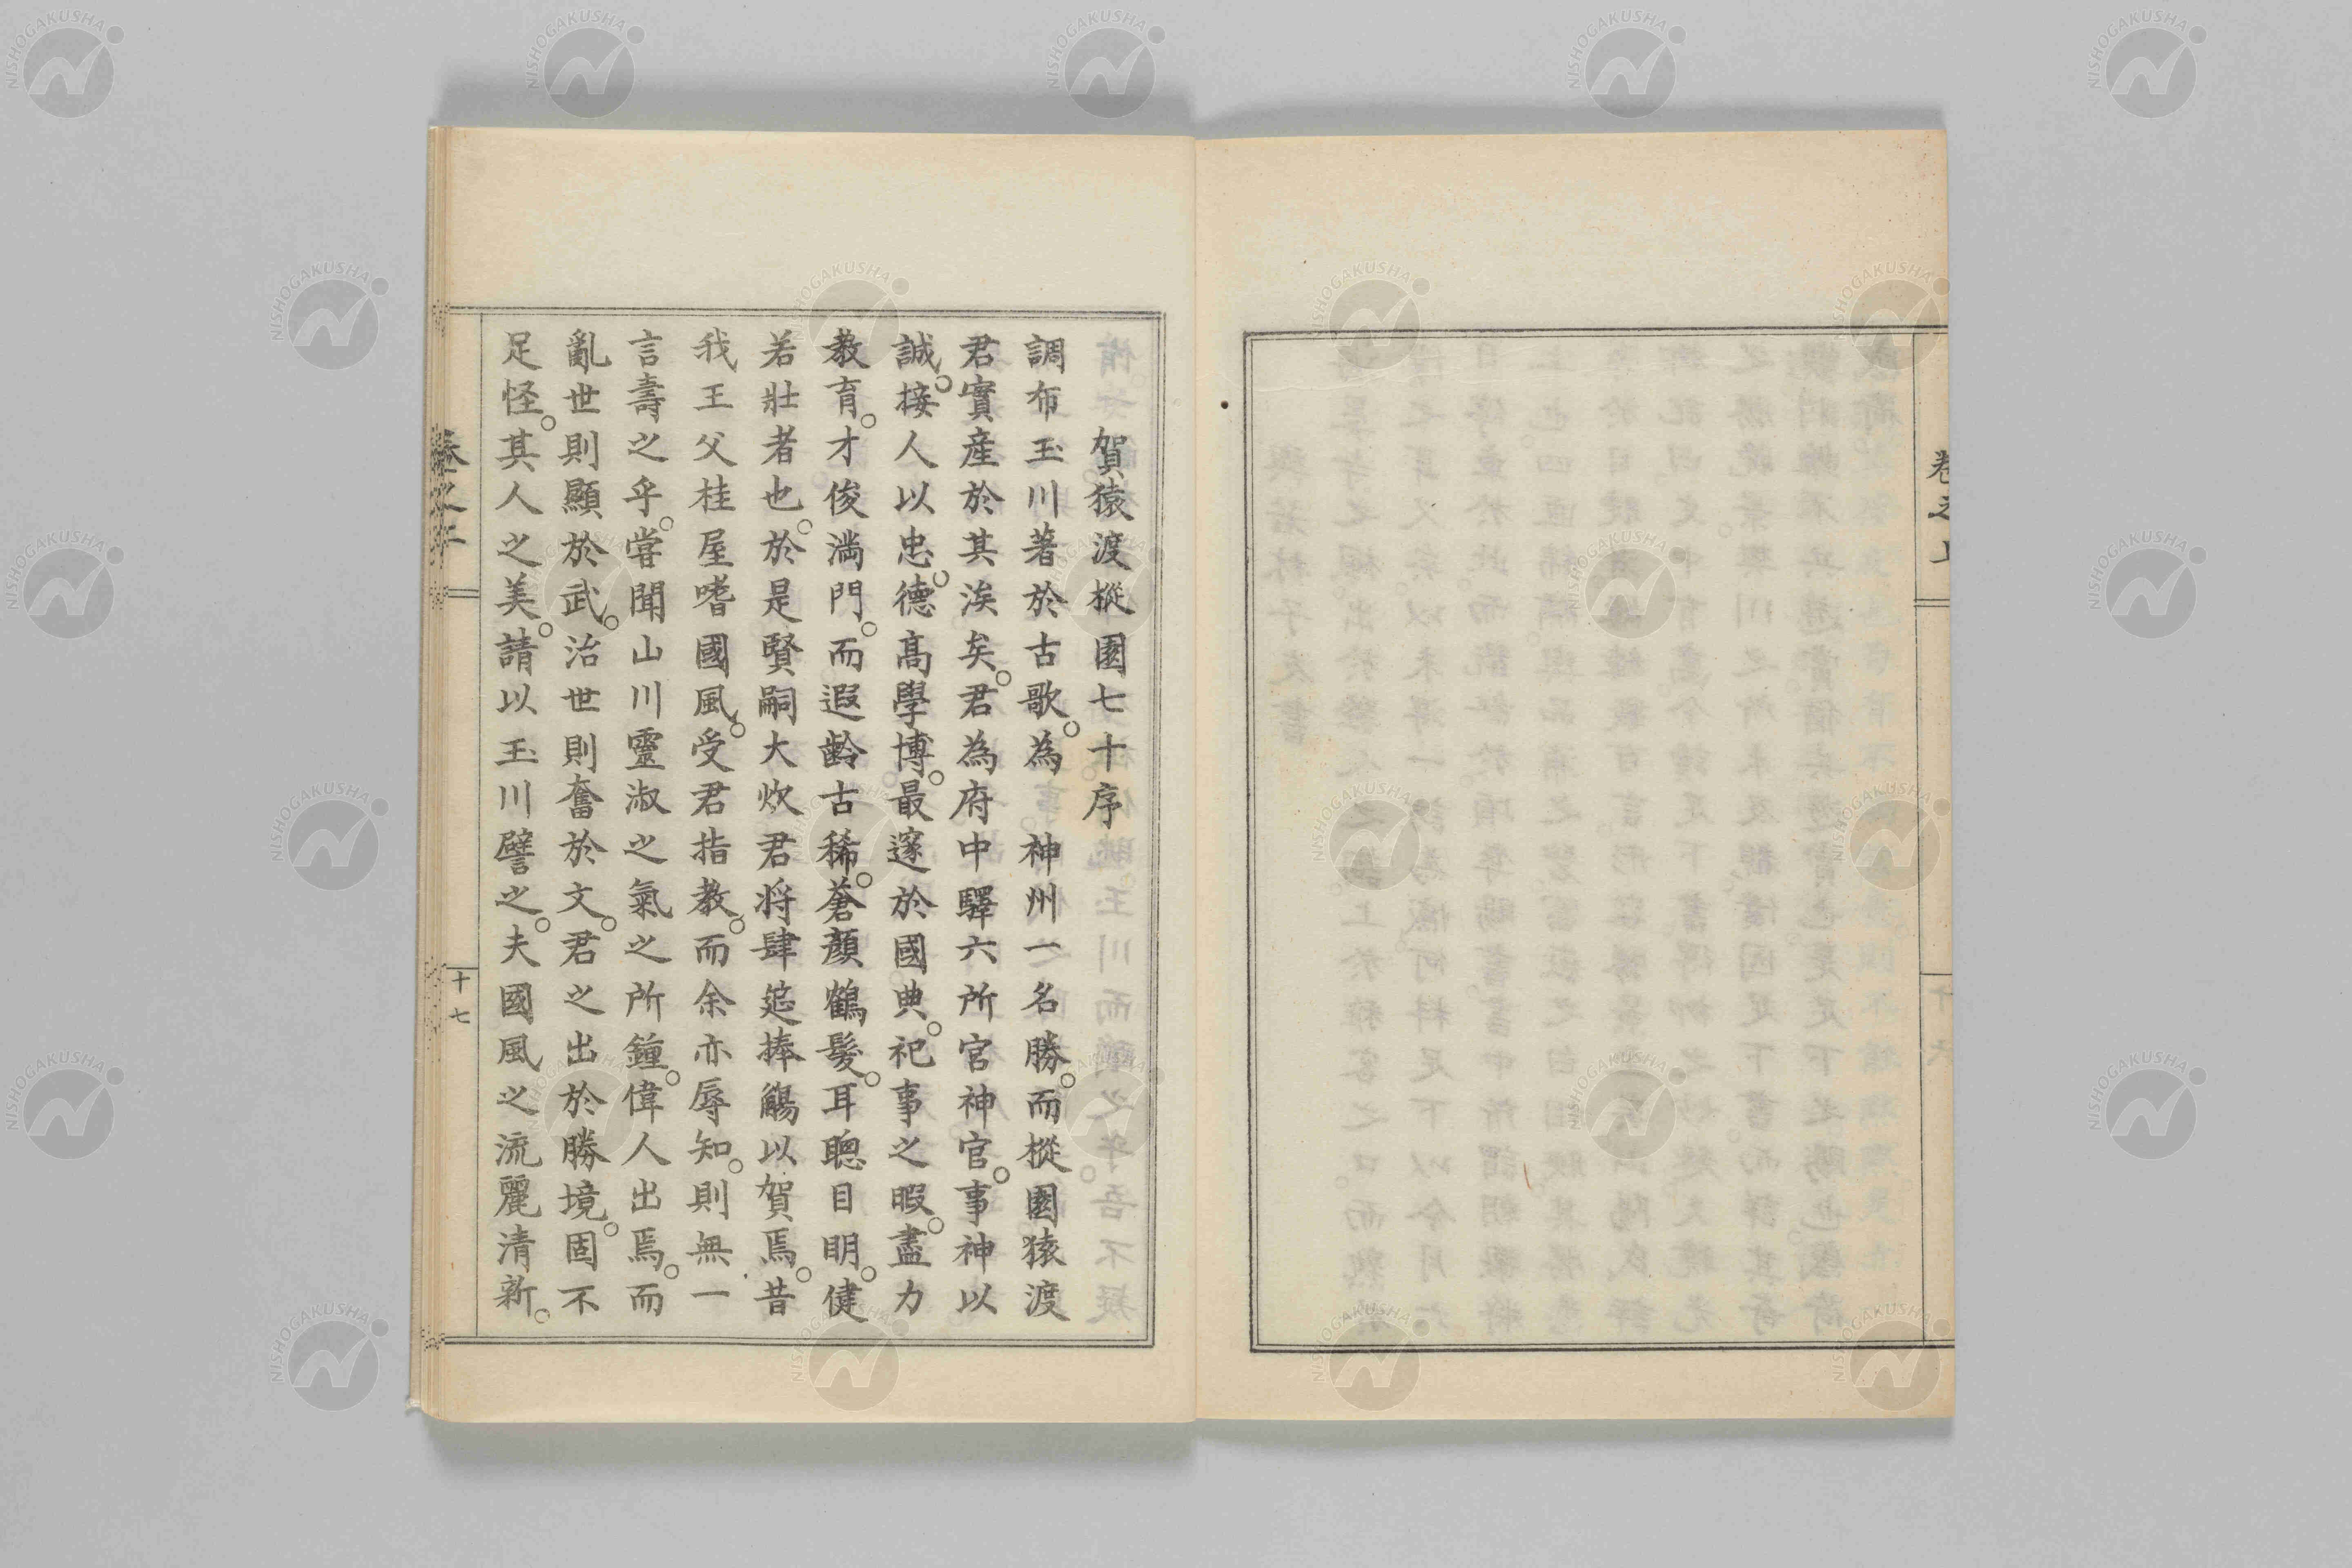 卷之上
賀猿渡樅園七十序
調布玉川著於古歌。為神州一名勝。而樅園猿渡
君實産於其涘矣。君為府中驛六所官神官。事神以
誠。接人以忠。德高學博。最邃於國典。祀事之暇。盡力
教育。才俊滿門。而遐齡古稀。蒼顏鶴髮。耳聰目明。健
若壯者也。於是賢嗣大炊君将肆筵捧觴以賀焉。昔
我王父桂屋嗜國風。受君指教。而余亦辱知。則無一
言壽之乎。嘗聞山川靈淑之氣之所鍾。偉人出焉。而
亂世則顯於武。治世則奮於文。君之出於勝境。固不
足怪。其人之美。請以玉川譬之。夫國風之流麗清新。
十七
NISHOGAKUSHA